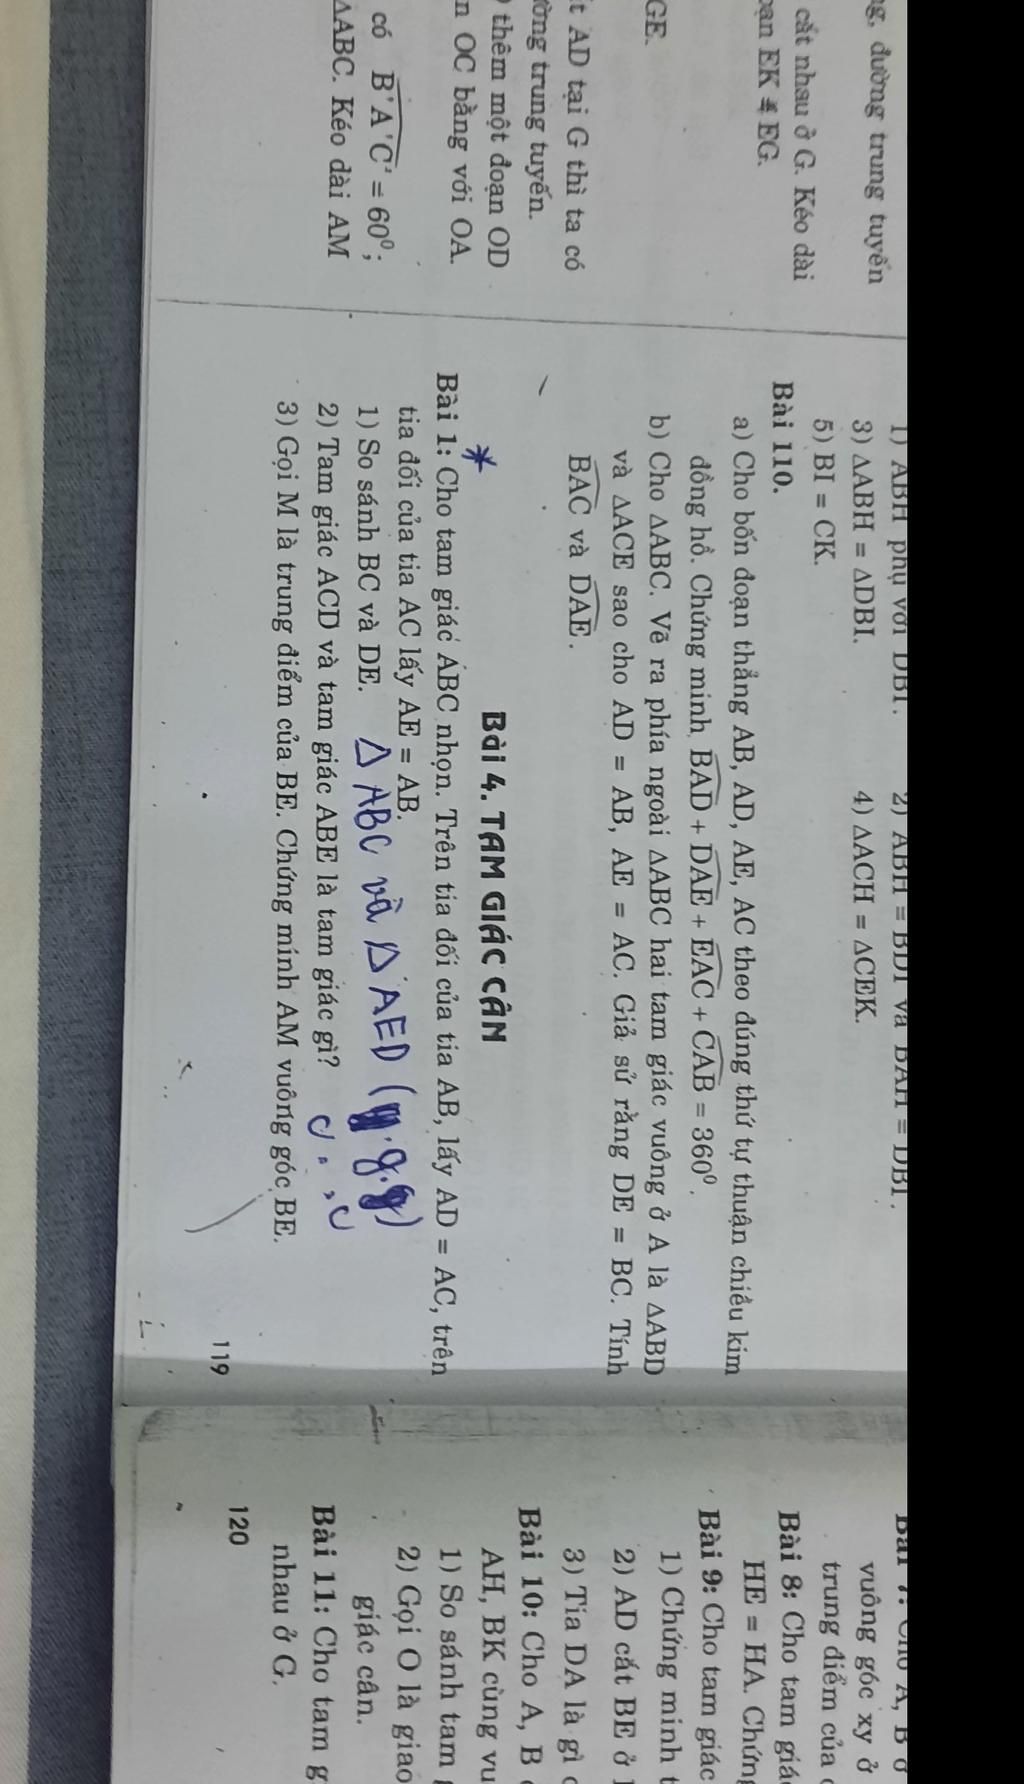 g, đường trung tuyến
cắt nhau ở G. Kéo dài
EK = EG.
GE.
AD tại G thì ta có
trung tuyến.
thêm một đoạn OD
OC bằng với OA.
có B'A'C' = 60⁰;
ΔABC. Kéo dài AM
1) ABH phụ với DBI. 2) ABH = BDI và BAH = DBI.
3) ΔABH = ΔDBI. 4) ΔACH = ΔCEK.
5) BI = CK.
Bài 110.
a) Cho bốn đoạn thẳng AB, AD, AE, AC theo đúng thứ tự thuận chiều kim
đồng hồ. Chứng minh BAD + DAE + EAC + CAB = 360⁰.
b) Cho ΔABC. Vẽ ra phía ngoài ΔABC hai tam giác vuông ở A là ΔABD
và ΔACE sao cho AD = AB, AE = AC. Giả sử rằng DE = BC. Tính
BAC và DAE.
Bài 4. TAM GIÁC CÂN
*
Bài 1: Cho tam giác ABC nhọn. Trên tia đối của tia AB, lấy AD = AC, trên
tia đối của tia AC lấy AE = AB.
1) So sánh BC và DE. Δ ABC và Δ AED
2) Tam giác ACD và tam giác ABE là tam giác gì?
3) Gọi M là trung điểm của BE. Chứng minh AM vuông góc BE.
119
vuông góc xy ở
trung điểm của
Bài 8: Cho tam giác
HE = HA. Chứng
Bài 9: Cho tam giác
1) Chứng minh
2) AD cắt BE ở
3) Tia DA là gì
Bài 10: Cho A, B
AH, BK cùng
1) So sánh tam
2) Gọi O là giao
giác cân.
Bài 11: Cho tam
nhau ở G.
120